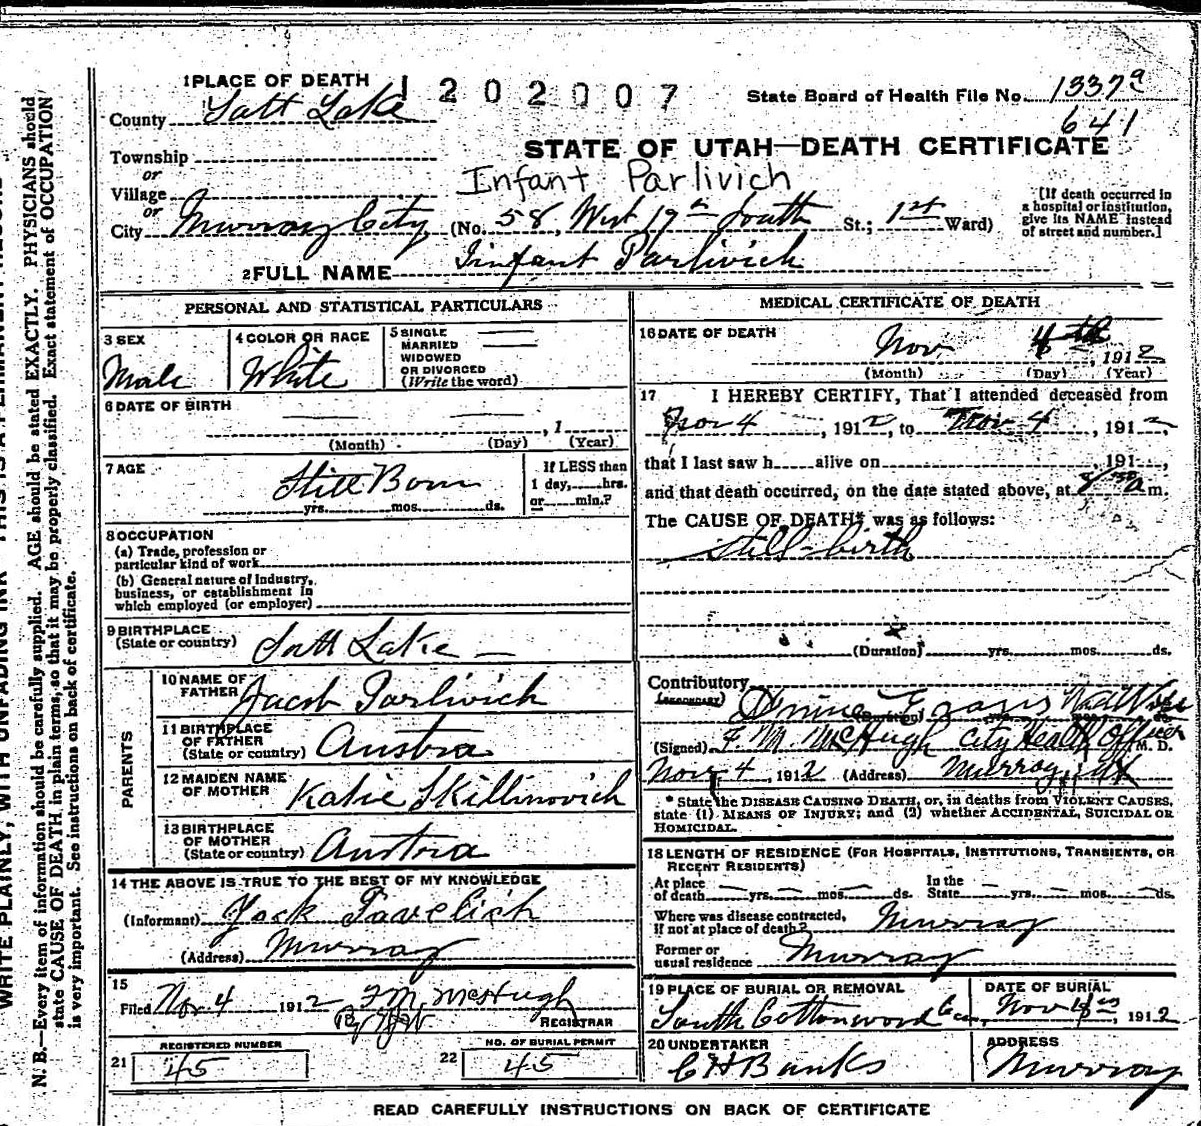 1 PLACE OF DEATH
1 2 0 2 0 0 7
State Board of Health File No. 1337a
County Salt Lake
641
Township
STATE OF UTAH—DEATH CERTIFICATE
or
Village
Infant Parlivich
or
City Murray City (No. 58, West 19th South St.; 1st Ward)
[If death occurred in
a hospital or institution,
give its NAME instead
of street and number.]
2 FULL NAME Infant Parlivich
PERSONAL AND STATISTICAL PARTICULARS
3 SEX
Male
4 COLOR OR RACE
White
5 SINGLE
MARRIED
WIDOWED
OR DIVORCED
(Write the word)
6 DATE OF BIRTH
, 1
(Month) (Day) (Year)
7 AGE
Still Born
yrs. mos. ds.
If LESS than
1 day, hrs.
or min.?
8 OCCUPATION
(a) Trade, profession or
particular kind of work
(b) General nature of Industry,
business, or establishment in
which employed (or employer)
9 BIRTHPLACE
(State or country) Salt Lake —
PARENTS
10 NAME OF
FATHER Jacob Parlivich
11 BIRTHPLACE
OF FATHER
(State or country) Austra
12 MAIDEN NAME
OF MOTHER Katie Skillinovich
13 BIRTHPLACE
OF MOTHER
(State or country) Austria
14 THE ABOVE IS TRUE TO THE BEST OF MY KNOWLEDGE
(Informant) Jack Pavelich
(Address) Murray
15
Filed Nov. 4 1912 F.M. McHugh
REGISTRAR
REGISTERED NUMBER
21 45
NO. OF BURIAL PERMIT
22 45
MEDICAL CERTIFICATE OF DEATH
16 DATE OF DEATH
Nov 4th, 1912
(Month) (Day) (Year)
17 I HEREBY CERTIFY, That I attended deceased from
Nov 4, 1912, to Nov 4, 1912,
that I last saw h alive on , 191 ,
and that death occurred, on the date stated above, at 8 30 a m.
The CAUSE OF DEATH* was as follows:
still-birth
(Duration) yrs. mos. ds.
Contributory
(SECONDARY)
(Signed) F. M. McHugh City Health Officer M. D.
Nov 4, 1912 (Address) Murray, Ut
* State the DISEASE CAUSING DEATH, or, in deaths from VIOLENT CAUSES,
state (1) MEANS OF INJURY; and (2) whether ACCIDENTAL, SUICIDAL OR
HOMICIDAL.
18 LENGTH OF RESIDENCE (FOR HOSPITALS, INSTITUTIONS, TRANSIENTS, OR
RECENT RESIDENTS)
At place
of death yrs. mos. ds. In the
State yrs. mos. ds.
Where was disease contracted,
if not at place of death? Murray
Former or
usual residence Murray
19 PLACE OF BURIAL OR REMOVAL
South Cottonwood Cem.
DATE OF BURIAL
Nov 4th, 1912
20 UNDERTAKER
C H Banks
ADDRESS
Murray
READ CAREFULLY INSTRUCTIONS ON BACK OF CERTIFICATE
N. B.—Every item of information should be carefully supplied. AGE should be stated EXACTLY. PHYSICIANS should
state CAUSE OF DEATH in plain terms, so that it may be properly classified. Exact statement of OCCUPATION
is very important. See instructions on back of certificate.
WRITE PLAINLY, WITH UNFADING INK